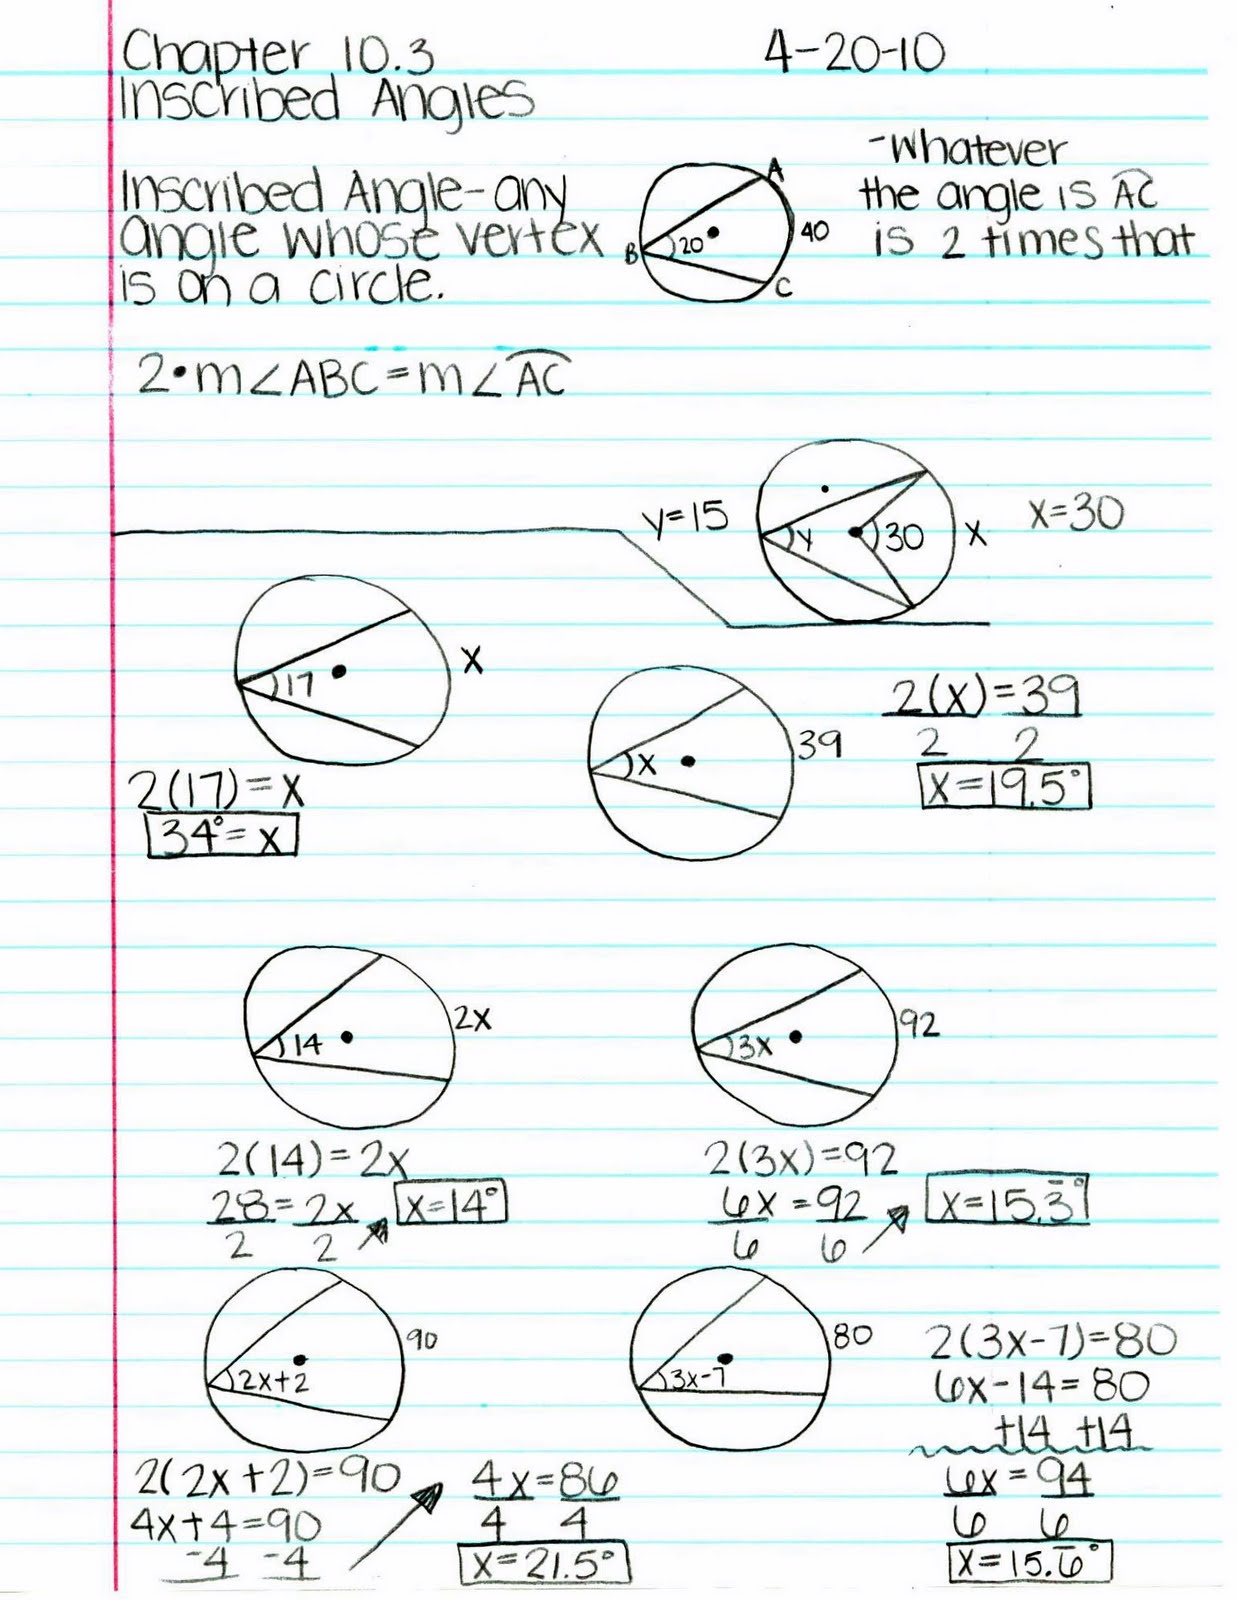 Chapter 10.3
4-20-10
Inscribed Angles
Inscribed Angle-any
angle whose vertex
is on a circle.
A
B
20
40
C
-Whatever
the angle is AC
is 2 times that
2•m∠ABC=m∠AC
y=15
y
30
x
x=30
17
x
2(17)=x
34°=x
x
39
2(x)=39
2 2
x=19.5°
14
2x
2(14)=2x
28=2x
2 2
x=14°
3x
92
2(3x)=92
6x=92
6 6
x=15.3̅°
2x+2
90
2(2x+2)=90
4x+4=90
-4 -4
4x=86
4 4
x=21.5°
3x-7
80
2(3x-7)=80
6x-14=80
+14 +14
6x=94
6 6
x=15.6̅°